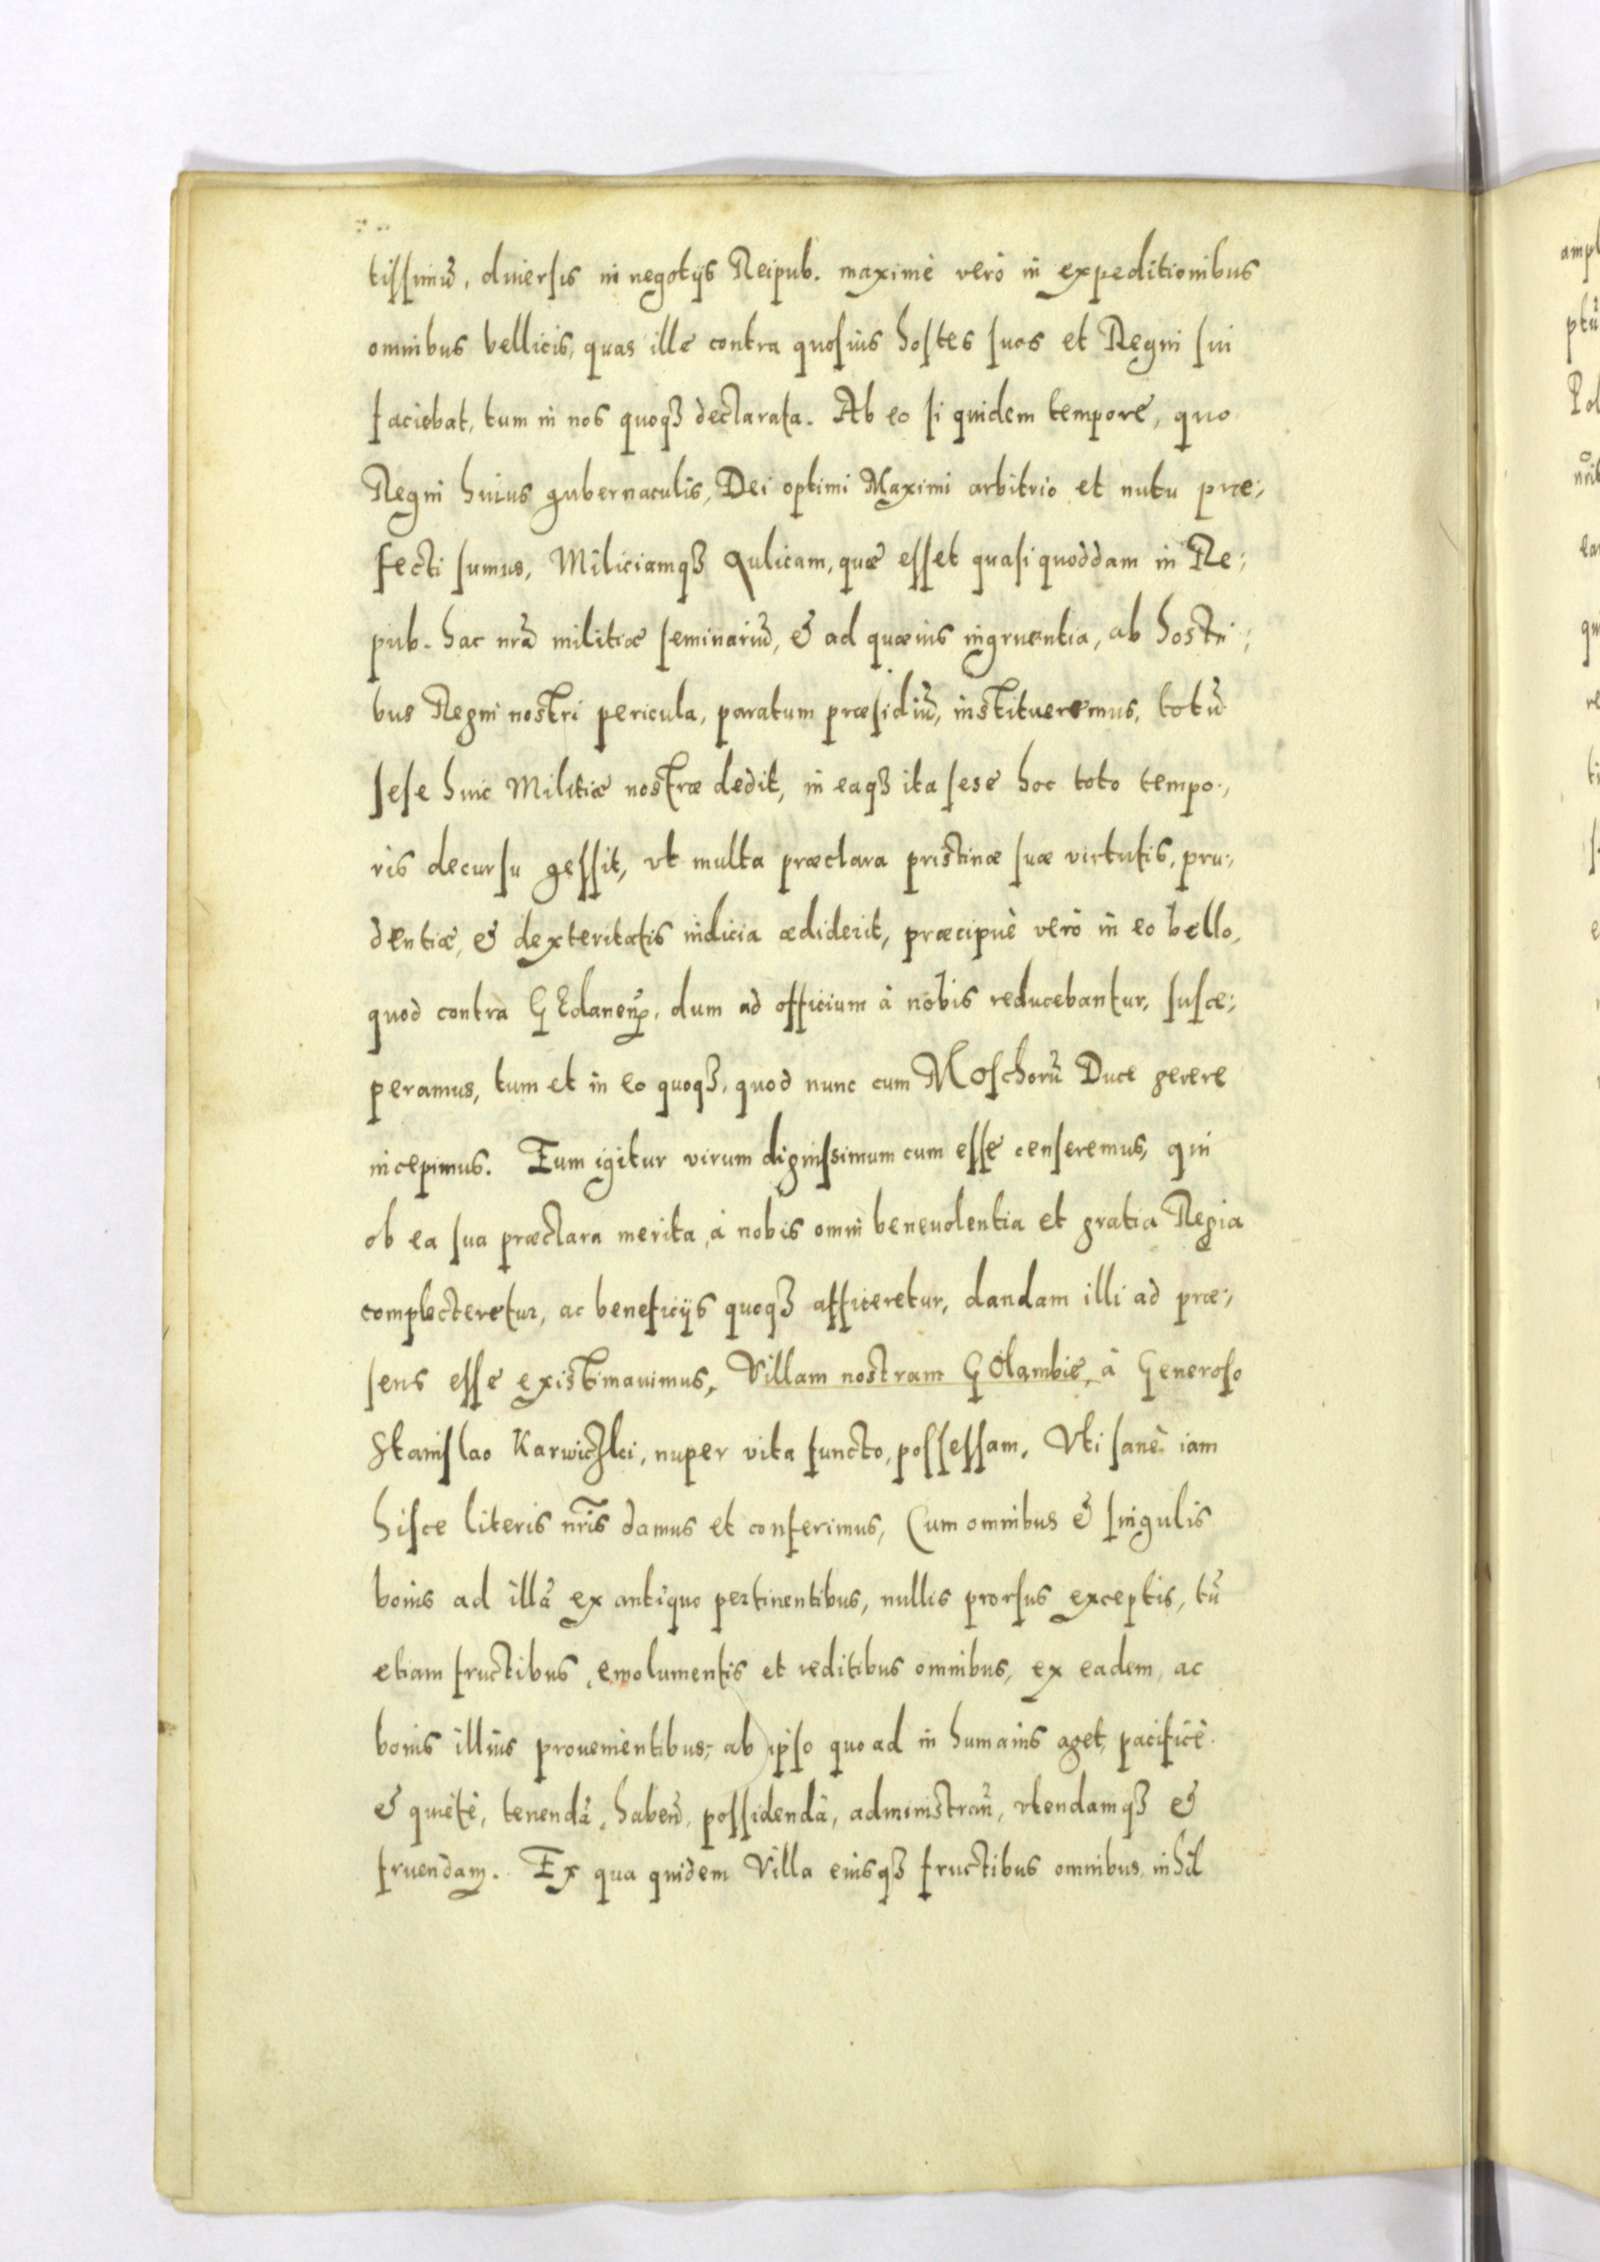 tissimũ, diuersis in negotijs Reipub. maximè verò in expeditionibus
omnibus bellicis, quas ille contra quosuis hostes suos et Regni sui
faciebat, tum in nos quoqꝫ declarata. Ab eo si quidem tempore, quo
Regni huius gubernaculis, Dei optimi Maximi arbitrio et nutu præ:,
fecti sumus, Miliciamqꝫ Aulicam, quæ esset quasi quoddam in Re:,
pub. hac nrã militiæ seminariũ, & ad quæuis ingruentia, ab hosti:,
bus Regni nostri pericula, paratum præsidiũ, institueremus, totũ
sese huic Militiæ nostræ dedit, in eaqꝫ ita sese hoc toto tempo:,
ris decursu gessit, vt multa præclara pristinæ suæ virtutis, pru:,
dentiæ, & dexteritatis indicia ædiderit, præcipuè verò in eo bello,
quod contra GEdanen̄, dum ad officium à nobis reducebantur, susce:,
peramus, tum et in eo quoqꝫ, quod nunc cum MOschorũ Duce gerere
incepimus. Eum igitur virum dignissimum cum esse censeremus, qui
ob ea sua præclara merita, à nobis omni beneuolentia et gratia Regia
complecteretur, ac beneficijs quoqꝫ afficeretur, dandam illi ad præ:,
sens esse existimauimus, Villam nostram GOlambie, à Generoso
Stanislao Karwiczki, nuper vita functo, possessam, Vti sanè iam
hisce literis nr̃is damus et conferimus, Cum omnibus & singulis
bonis ad illã ex antiquo pertinentibus, nullis prorsus exceptis, tũ
etiam fructibus, emolumentis et reditibus omnibus, ex eadem, ac
bonis illius prouenientibus, ab ipso quo ad in humanis aget, pacificè
& quietè, tenendã, haben̄, possidendã, administran̄, vtendamqꝫ &
fruendam. Ex qua quidem Villa eiusqꝫ fructibus omnibus nihil